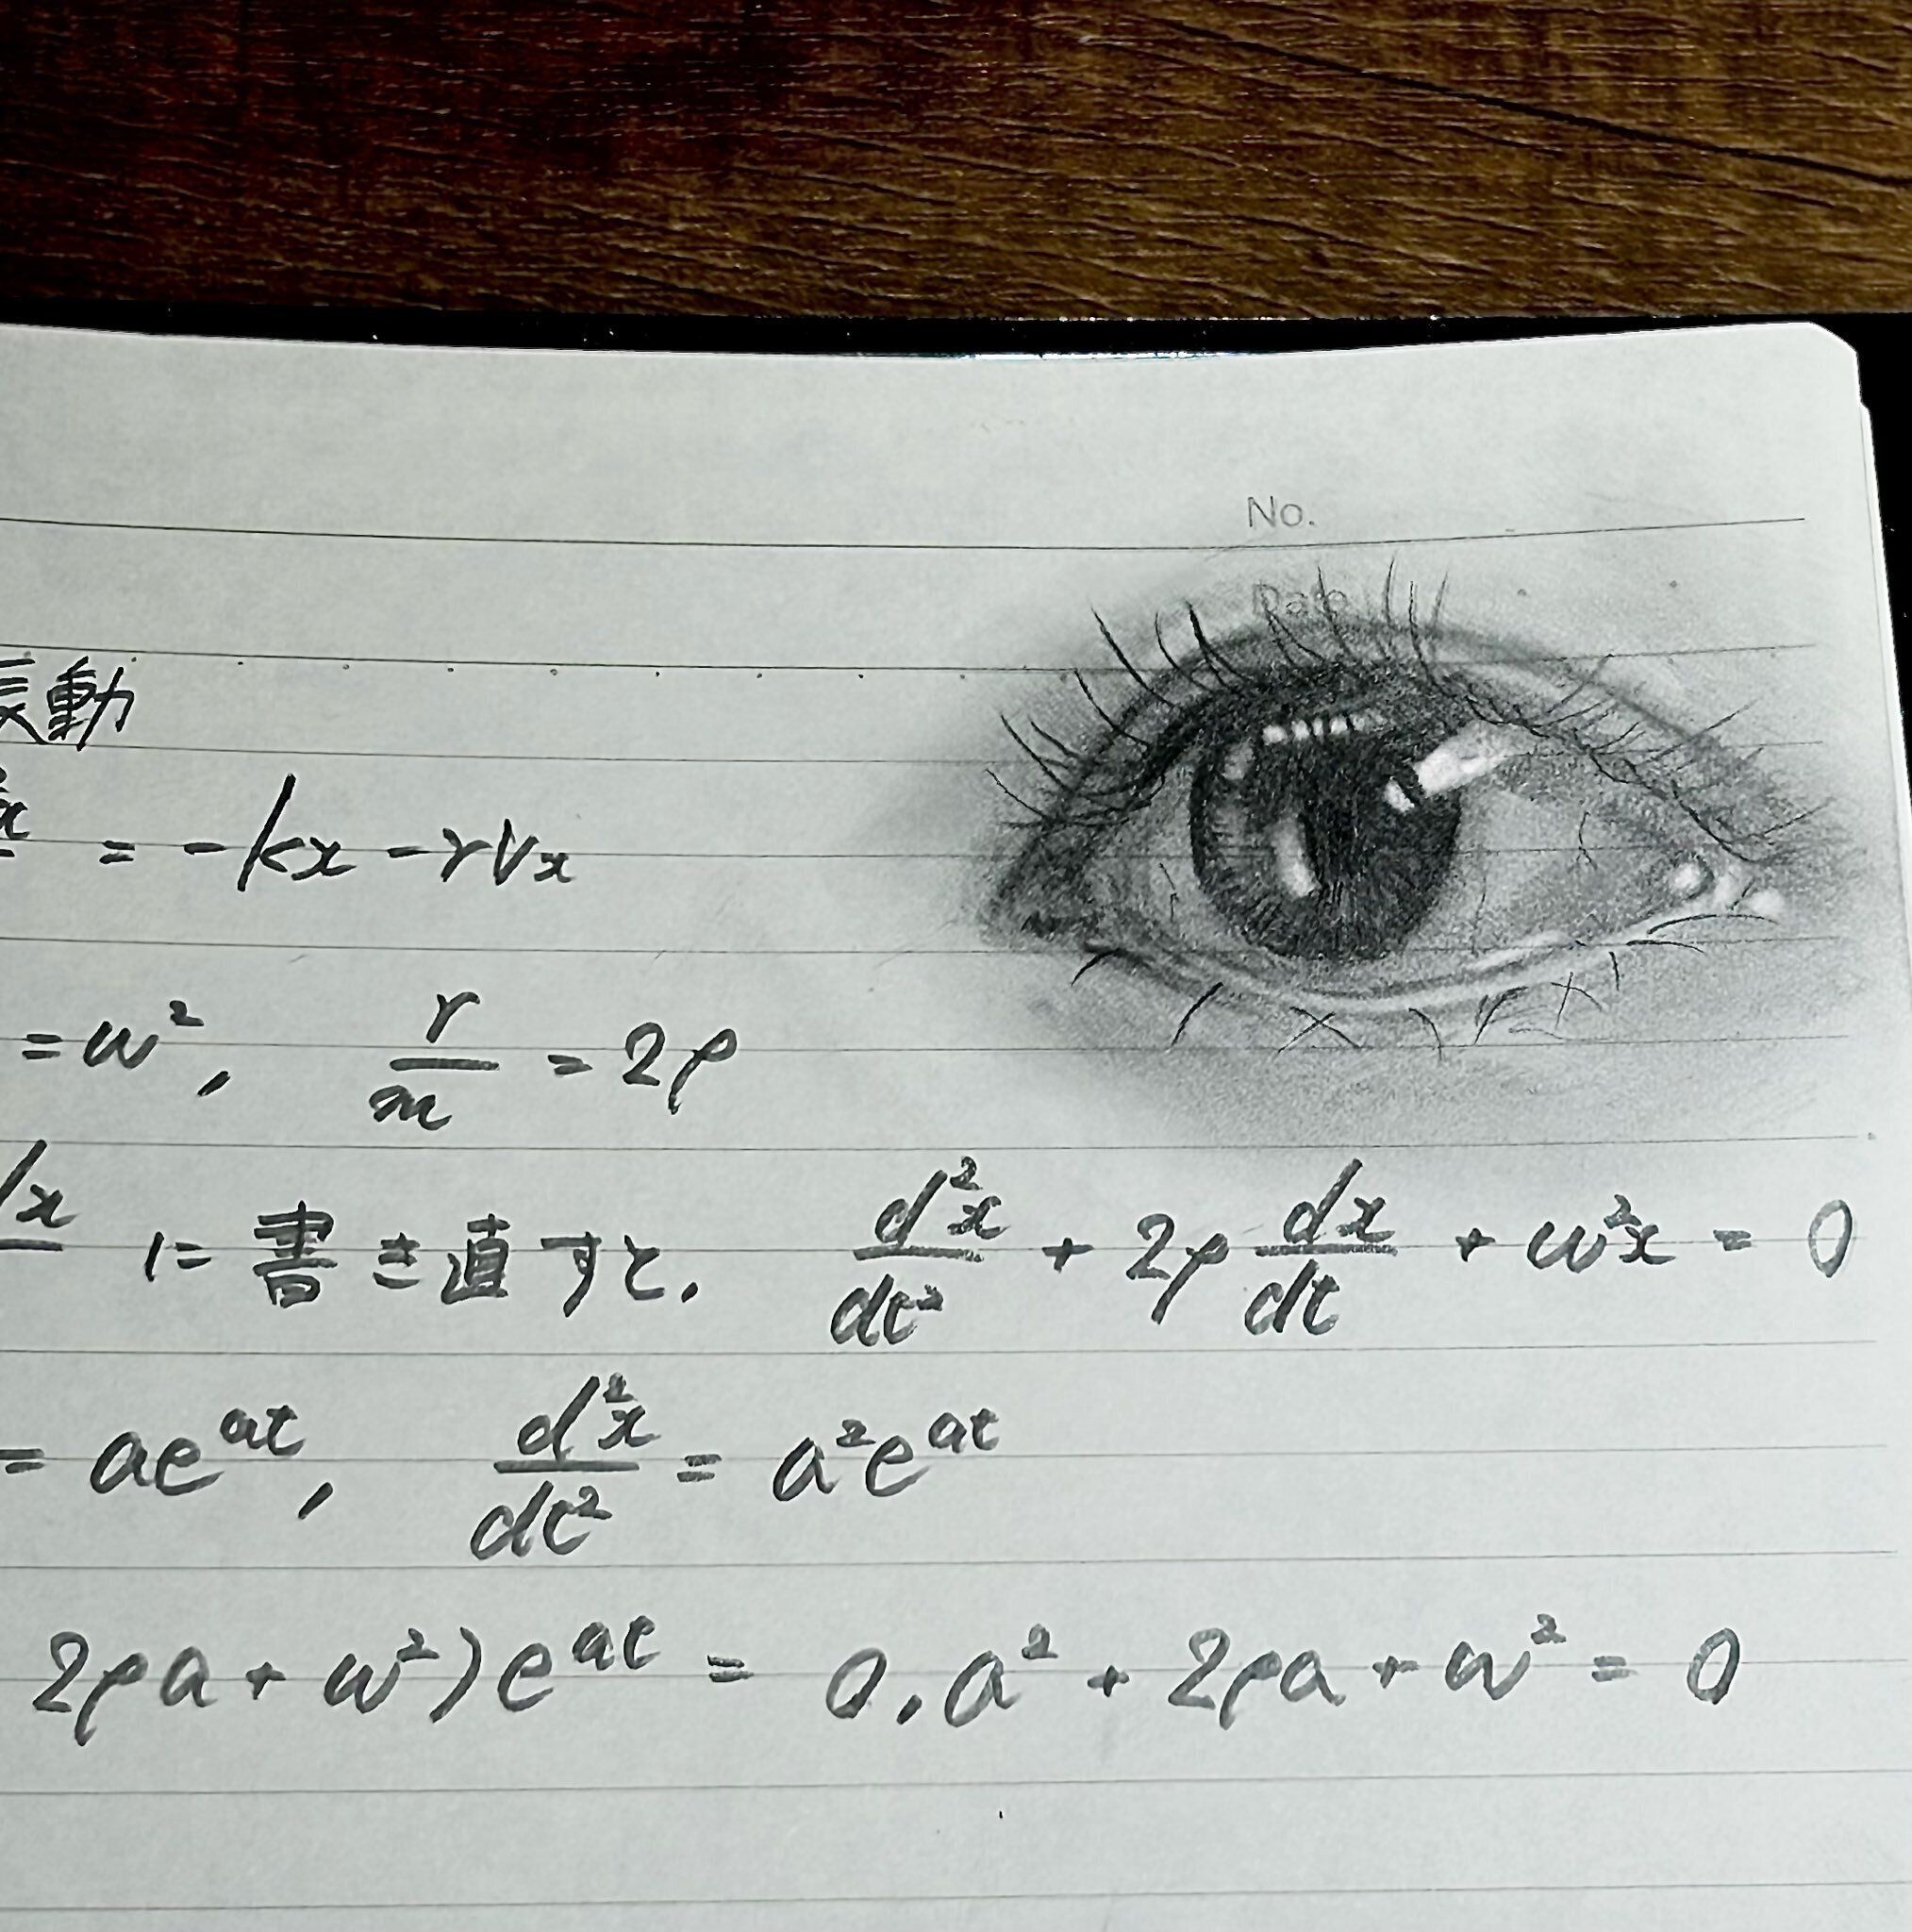 No.
Date
振動
= -kx - rVx
= ω², r/m = 2ρ
に書き直すと、 d²x/dt² + 2ρ dx/dt + ω²x = 0
= ae^{at}, d²x/dt² = a²e^{at}
2ρa + ω²)e^{at} = 0, a² + 2ρa + ω² = 0